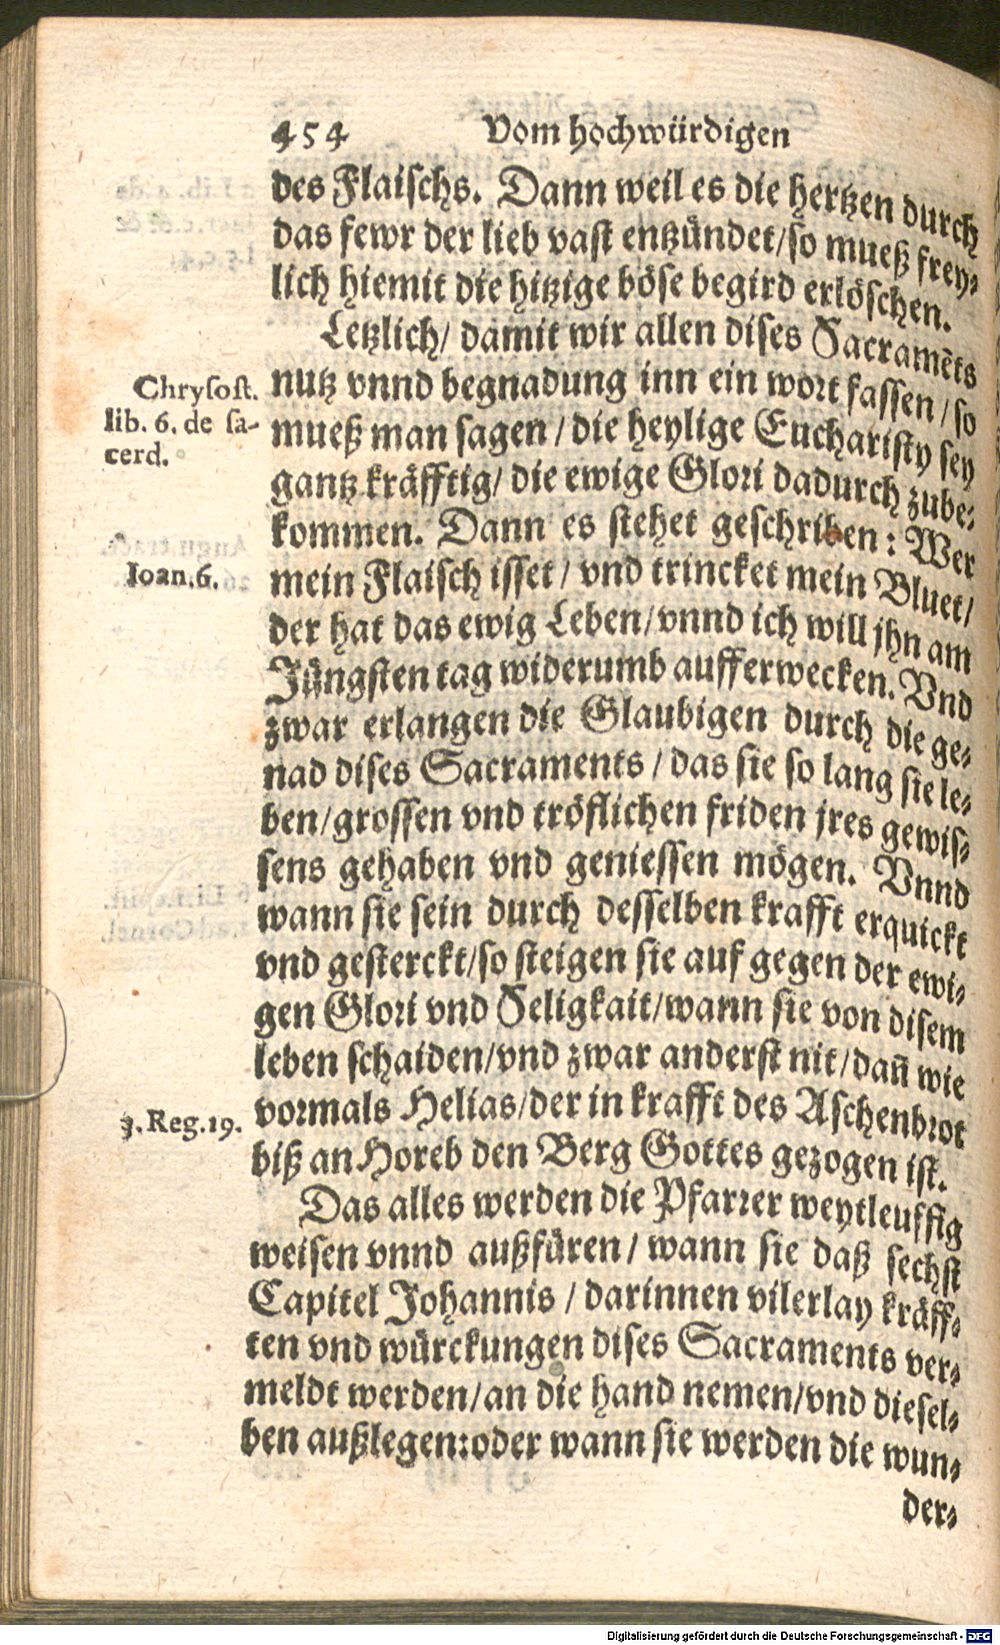 454 Vom hochwürdigen
des Flaischs. Dann weil es die hertzen durch
das fewr der lieb vast entzündet/so mueß frey-
lich hiemit die hitzige böse begird erlöschen.
Letzlich/ damit wir allen dises Sacramẽts
Chrysost.
lib. 6. de sa-
cerd.
nutz vnnd begnadung inn ein wort fassen/so
mueß man sagen/die heylige Eucharisty sey
gantz kräfftig/ die ewige Glori dadurch zube-
kommen. Dann es stehet geschriben: Wer
Ioan.6.
mein Flaisch isset/ vnd trincket mein Bluet/
der hat das ewig Leben/vnnd ich will jhn am
Jüngsten tag widerumb aufferwecken. Vnd
zwar erlangen die Glaubigen durch die ge-
nad dises Sacraments/das sie so lang sie le-
ben/grossen vnd tröstlichen friden jres gewis-
sens gehaben vnd geniessen mögen. Vnnd
wann sie sein durch desselben krafft erquickt
vnd gesterckt/so steigen sie auf gegen der ewi-
gen Glori vnd Seligkait/wann sie von disem
leben schaiden/vnd zwar anderst nit/dañ wie
3. Reg.19.
vormals Helias/der in krafft des Aschenbrot
biß an Horeb den Berg Gottes gezogen ist.
Das alles werden die Pfarrer weytleuffig
weisen vnnd außfüren/ wann sie daß sechst
Capitel Johannis/darinnen vilerlay kräff-
ten vnd würckungen dises Sacraments ver-
meldt werden/an die hand nemen/vnd diesel-
ben außlegen:oder wann sie werden die wun-
der-
Digitalisierung gefördert durch die Deutsche Forschungsgemeinschaft - DFG